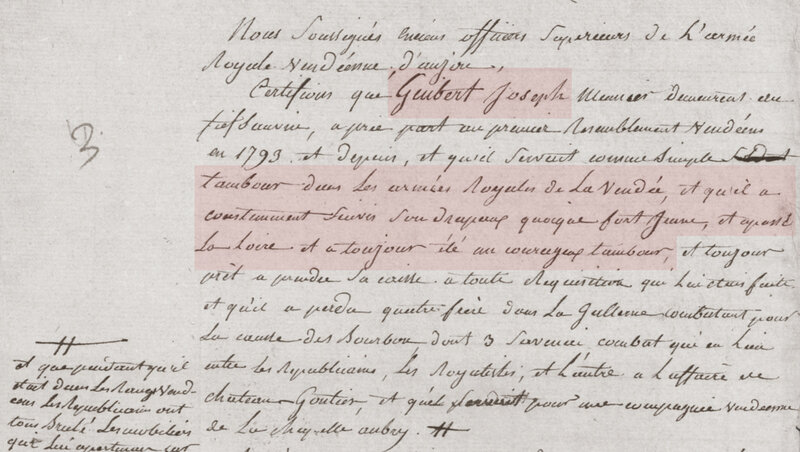 Nous Soussignés anciens officiers Superieurs de L'armée
Royale Vendéenne, d'anjou,
Certifions que Guibert Joseph Meunier demeurent au
fiefSauvin, a pris part au premier Rasemblement Vendéens
en 1793 et depuis, et qu'il Servoit comme Simple
tambour dans Les armées Royales de La Vendée, et qu'il a
constamment Suivis Son Drapeau quoique fort Jeune, et a passé
La Loire et a toujour été un courageux tambour, et toujour
prêt a prendre Sa caisse a toute Requisition qui Lui etais faite
et qu'il a perdu quatre frere dans La Guillerre combattant pour
La cause des Bourbon dont 3 combat qui eu Lieu
entre Les Republicains, Les Royalistes, et L'autre a L'affaire de
chateau Gontier, et qu'il pour une compagnie vendéenne
de La chapelle aubry. #
3
#
et que pendant qu'il
etait dans Les Rangs Vend-
éens Les Republicain ont
tous Brulé Les mobiliers
qui Lui